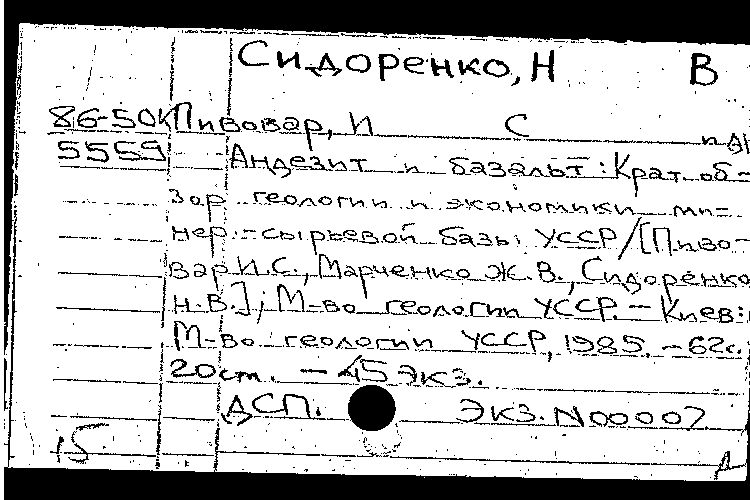 Сидоренко, Н В
86-50К Пивовар, И С
5559 Андезит и базальт: Крат. об-
зор геологии и экономики ми-
нер.-сырьевой базы УССР / [Пиво-
вар И.С., Марченко Ж.В., Сидоренко
Н.В.]; М-во геологии УССР. - Киев:
М-во геологии УССР, 1985. - 62с.
20см. - 45 экз.
ДСП. Экз. N00007
15